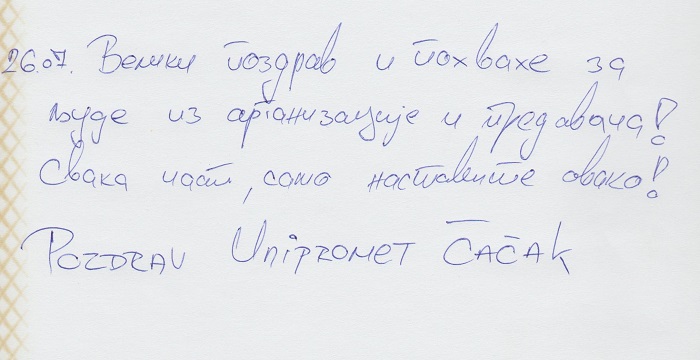 26.07. Велики поздрав и похвале за
људе из организације и предавача!
Свака част, само наставите овако!
Pozdrav Unipromet Čačak